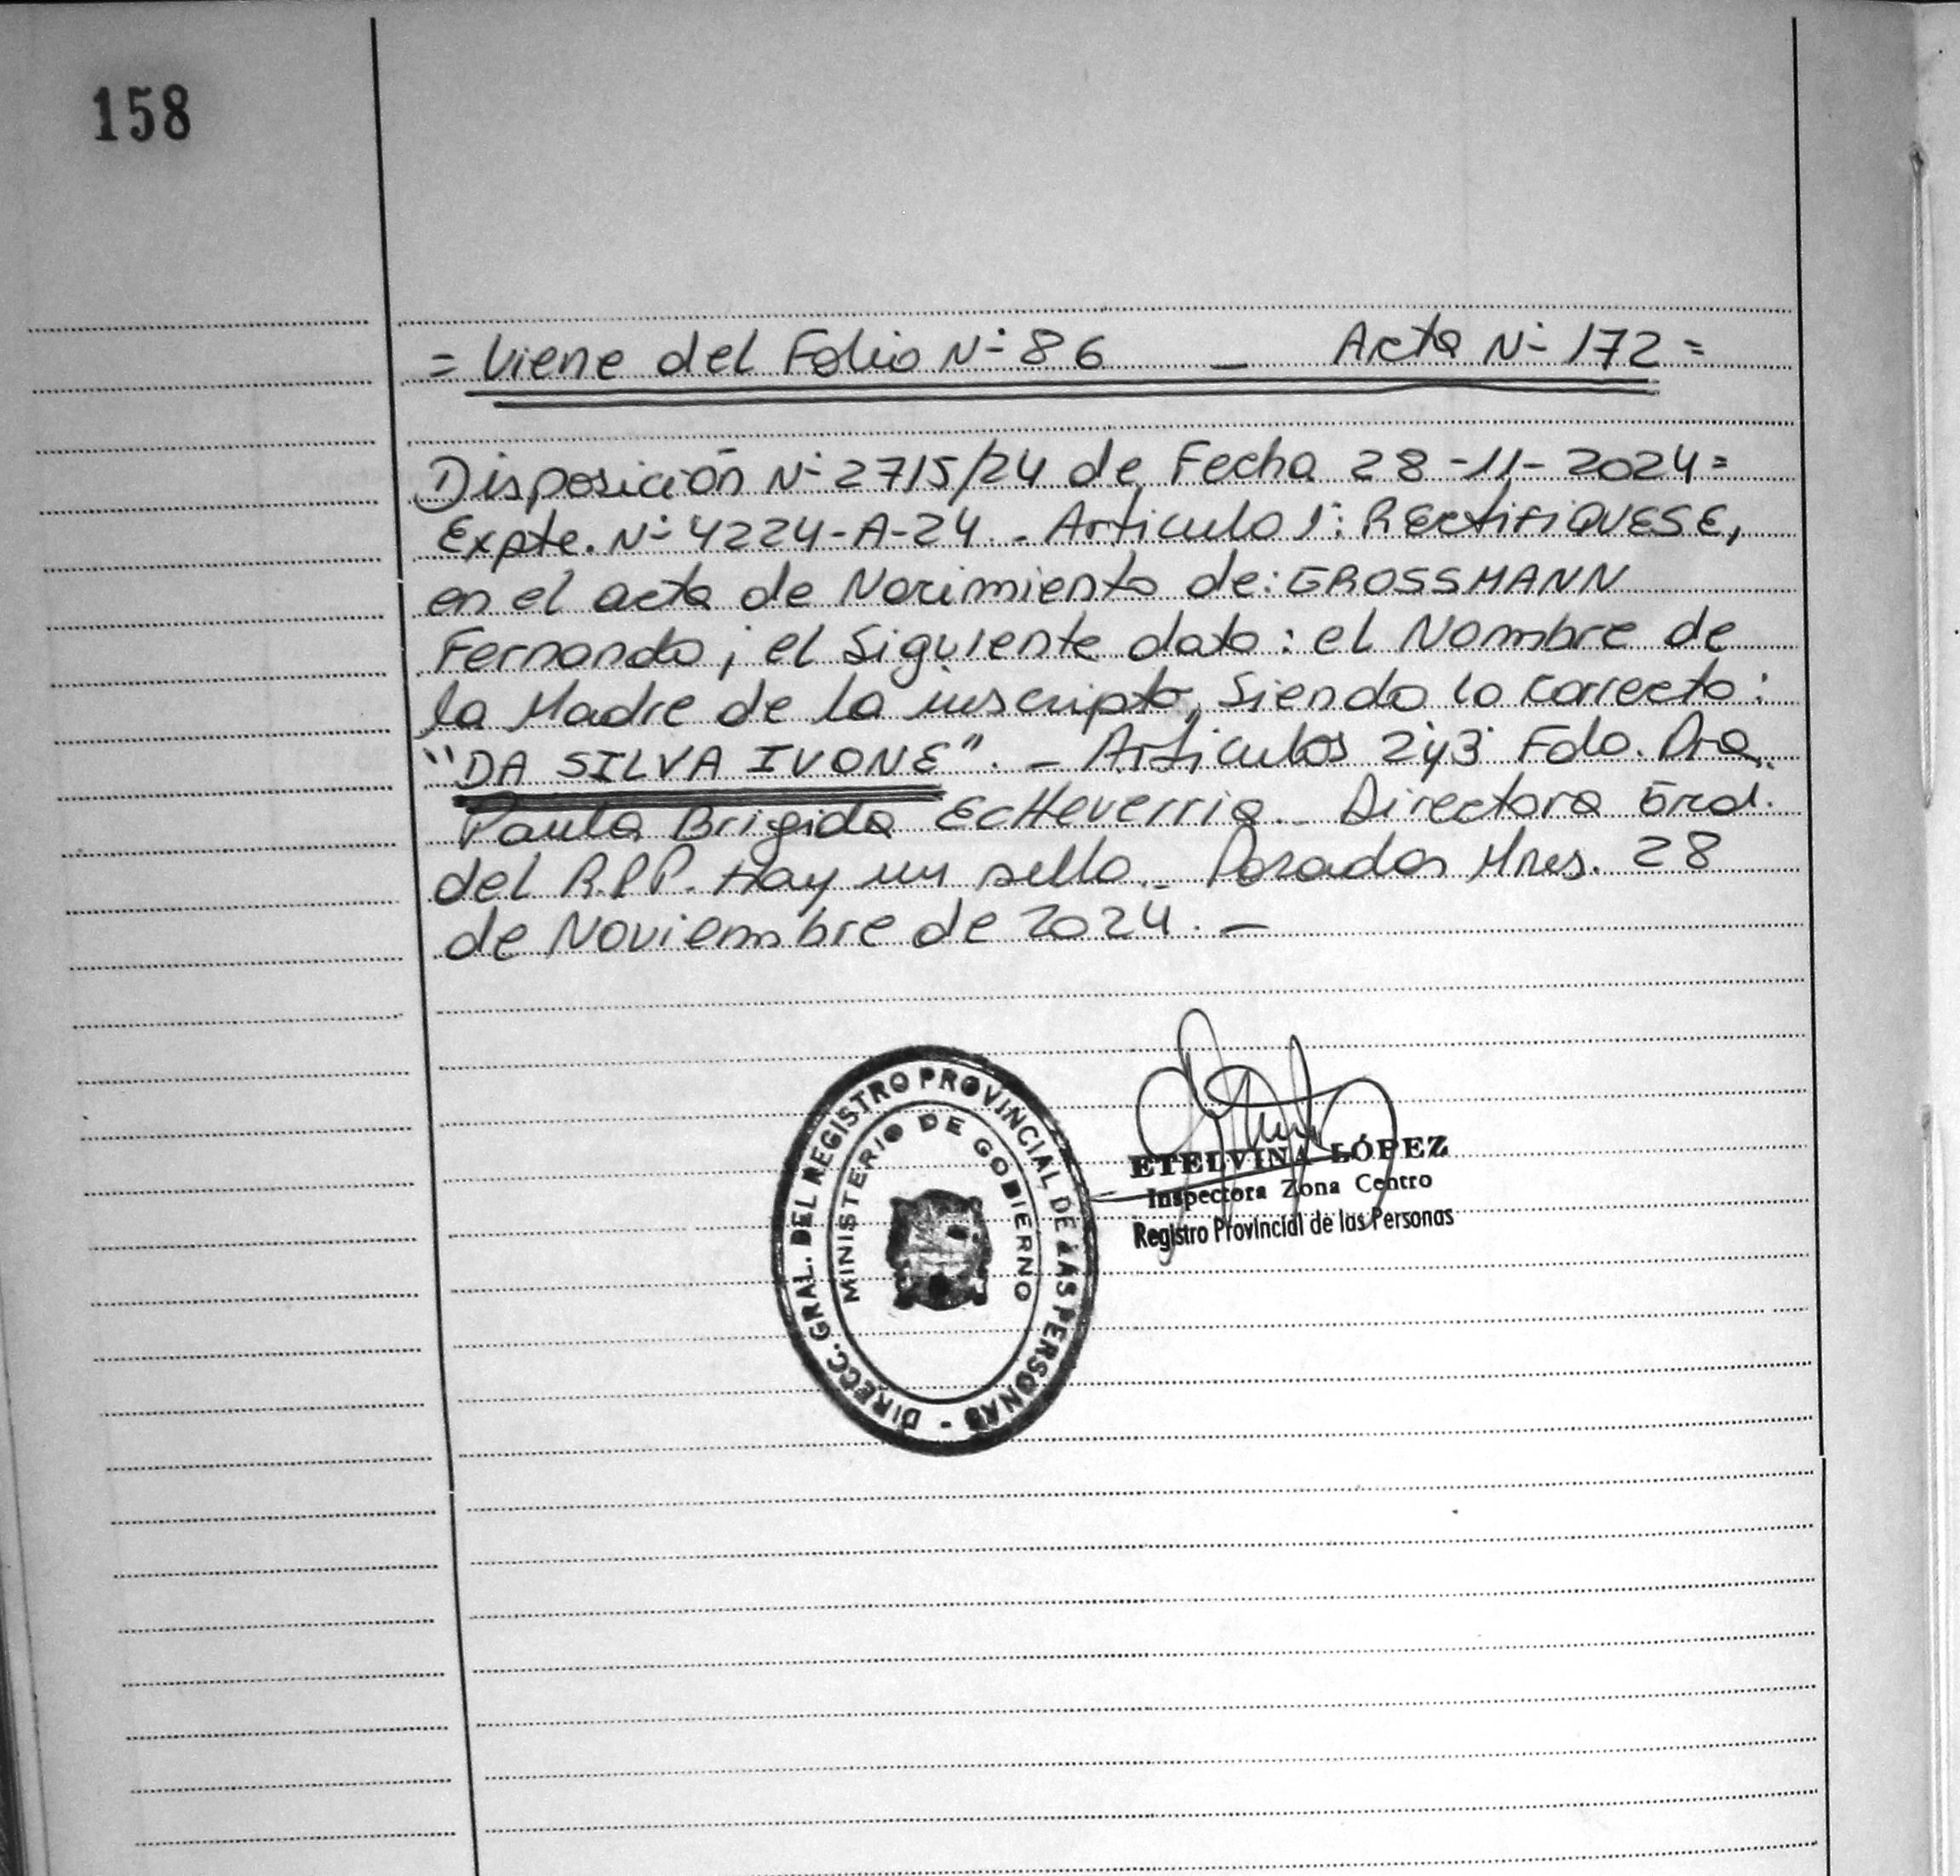 158
= Viene del Folio Nº 86 — Acta Nº 172 =
Disposición Nº 2715/24 de Fecha 28-11-2024=
Expte. Nº 4224-A-24. - Articulo 1º: RECtiFiQUESE,
en el acta de Nacimiento de: GROSSMANN
Fernando, el Siguiente dato: el Nombre de
la Madre de la inscripta, Siendo lo correcto:
"DA SILVA IVONE". - Articulos 2º y 3º Fdo. Dra.
Paula Brigida EcHeverria. Directora Gral.
del R.P.P. Hay un sello. - Posadas Mnes. 28
de Noviembre de 2024. -
DIRECC. GRAL. DEL REGISTRO PROVINCIAL DE LAS PERSONAS -
MINISTERIO DE GOBIERNO
ETELVINA LÓPEZ
Inspectora Zona Centro
Registro Provincial de las Personas